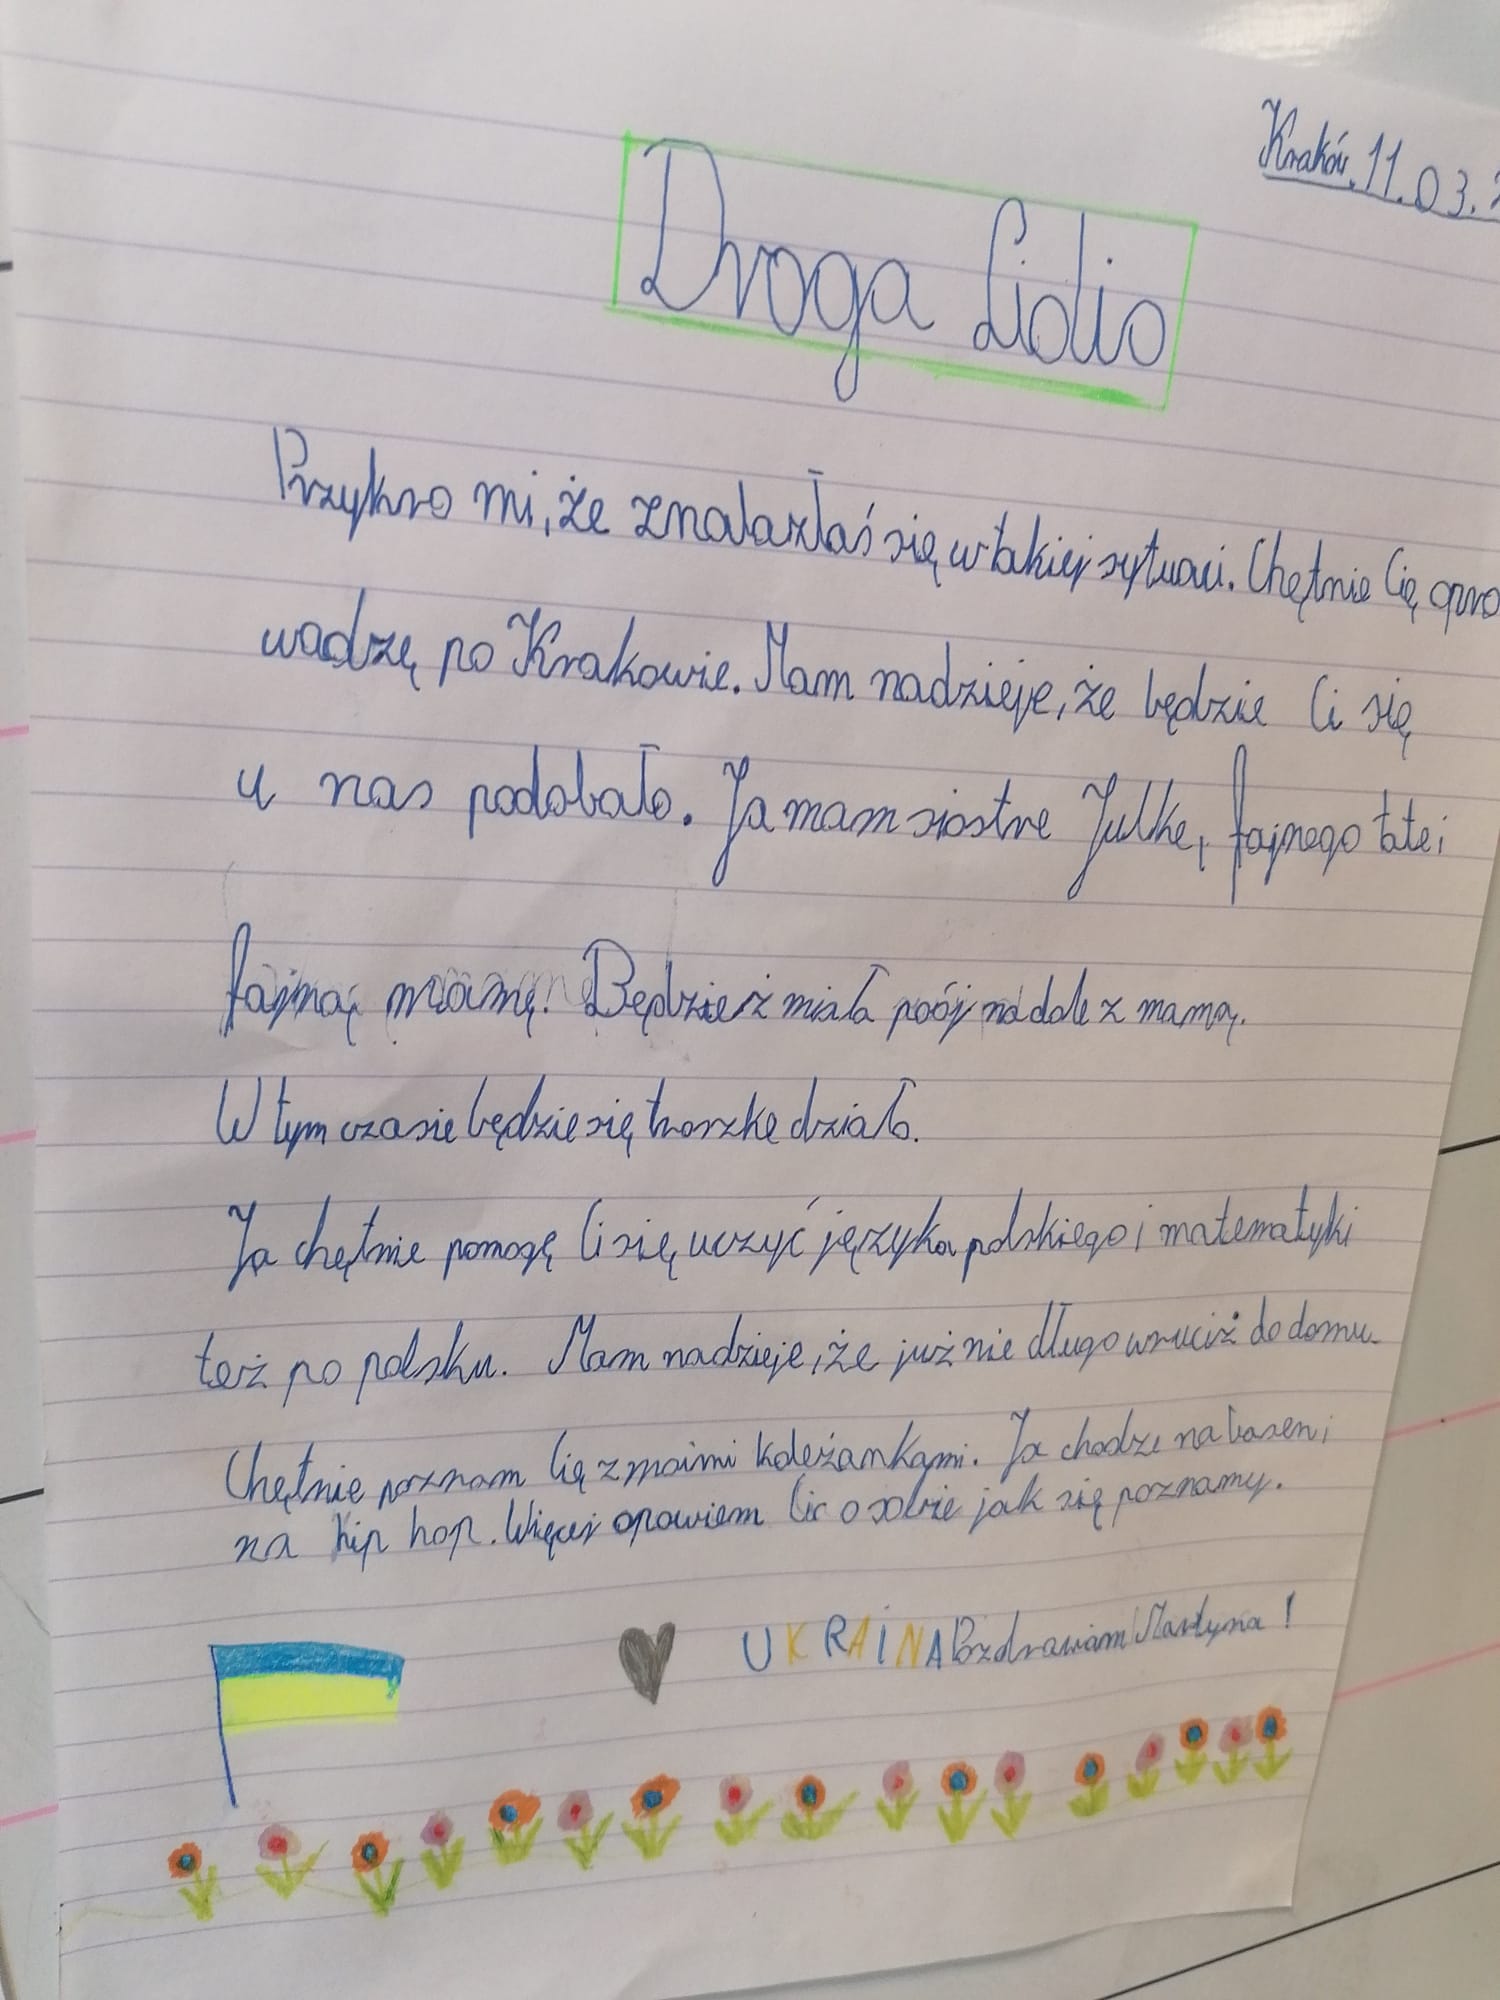 Kraków, 11.03.
Droga Lidio
Przykro mi, że znalazłaś się w takiej sytuaci. Chętnie Cię opro
wadzę po Krakowie. Mam nadzieje, że będzie Ci się
u nas podobało. Ja mam siostre Julke, fajnego tate i
fajną mamę. Będziesz miała pój na dole z mamą.
W tym czasie będzie się troszke działo.
Ja chętnie pomogę Ci się uczyć języka polskiego i matematyki
też po polsku. Mam nadzieje, że już nie długo wruciż do domu.
Chętnie poznam Cię z moimi koleżankami. Ja chodze na basen i
na hip hop. Więcej opowiem Ci o sobie jak się poznamy.
UKRAINA Pozdrawiam Martyna!